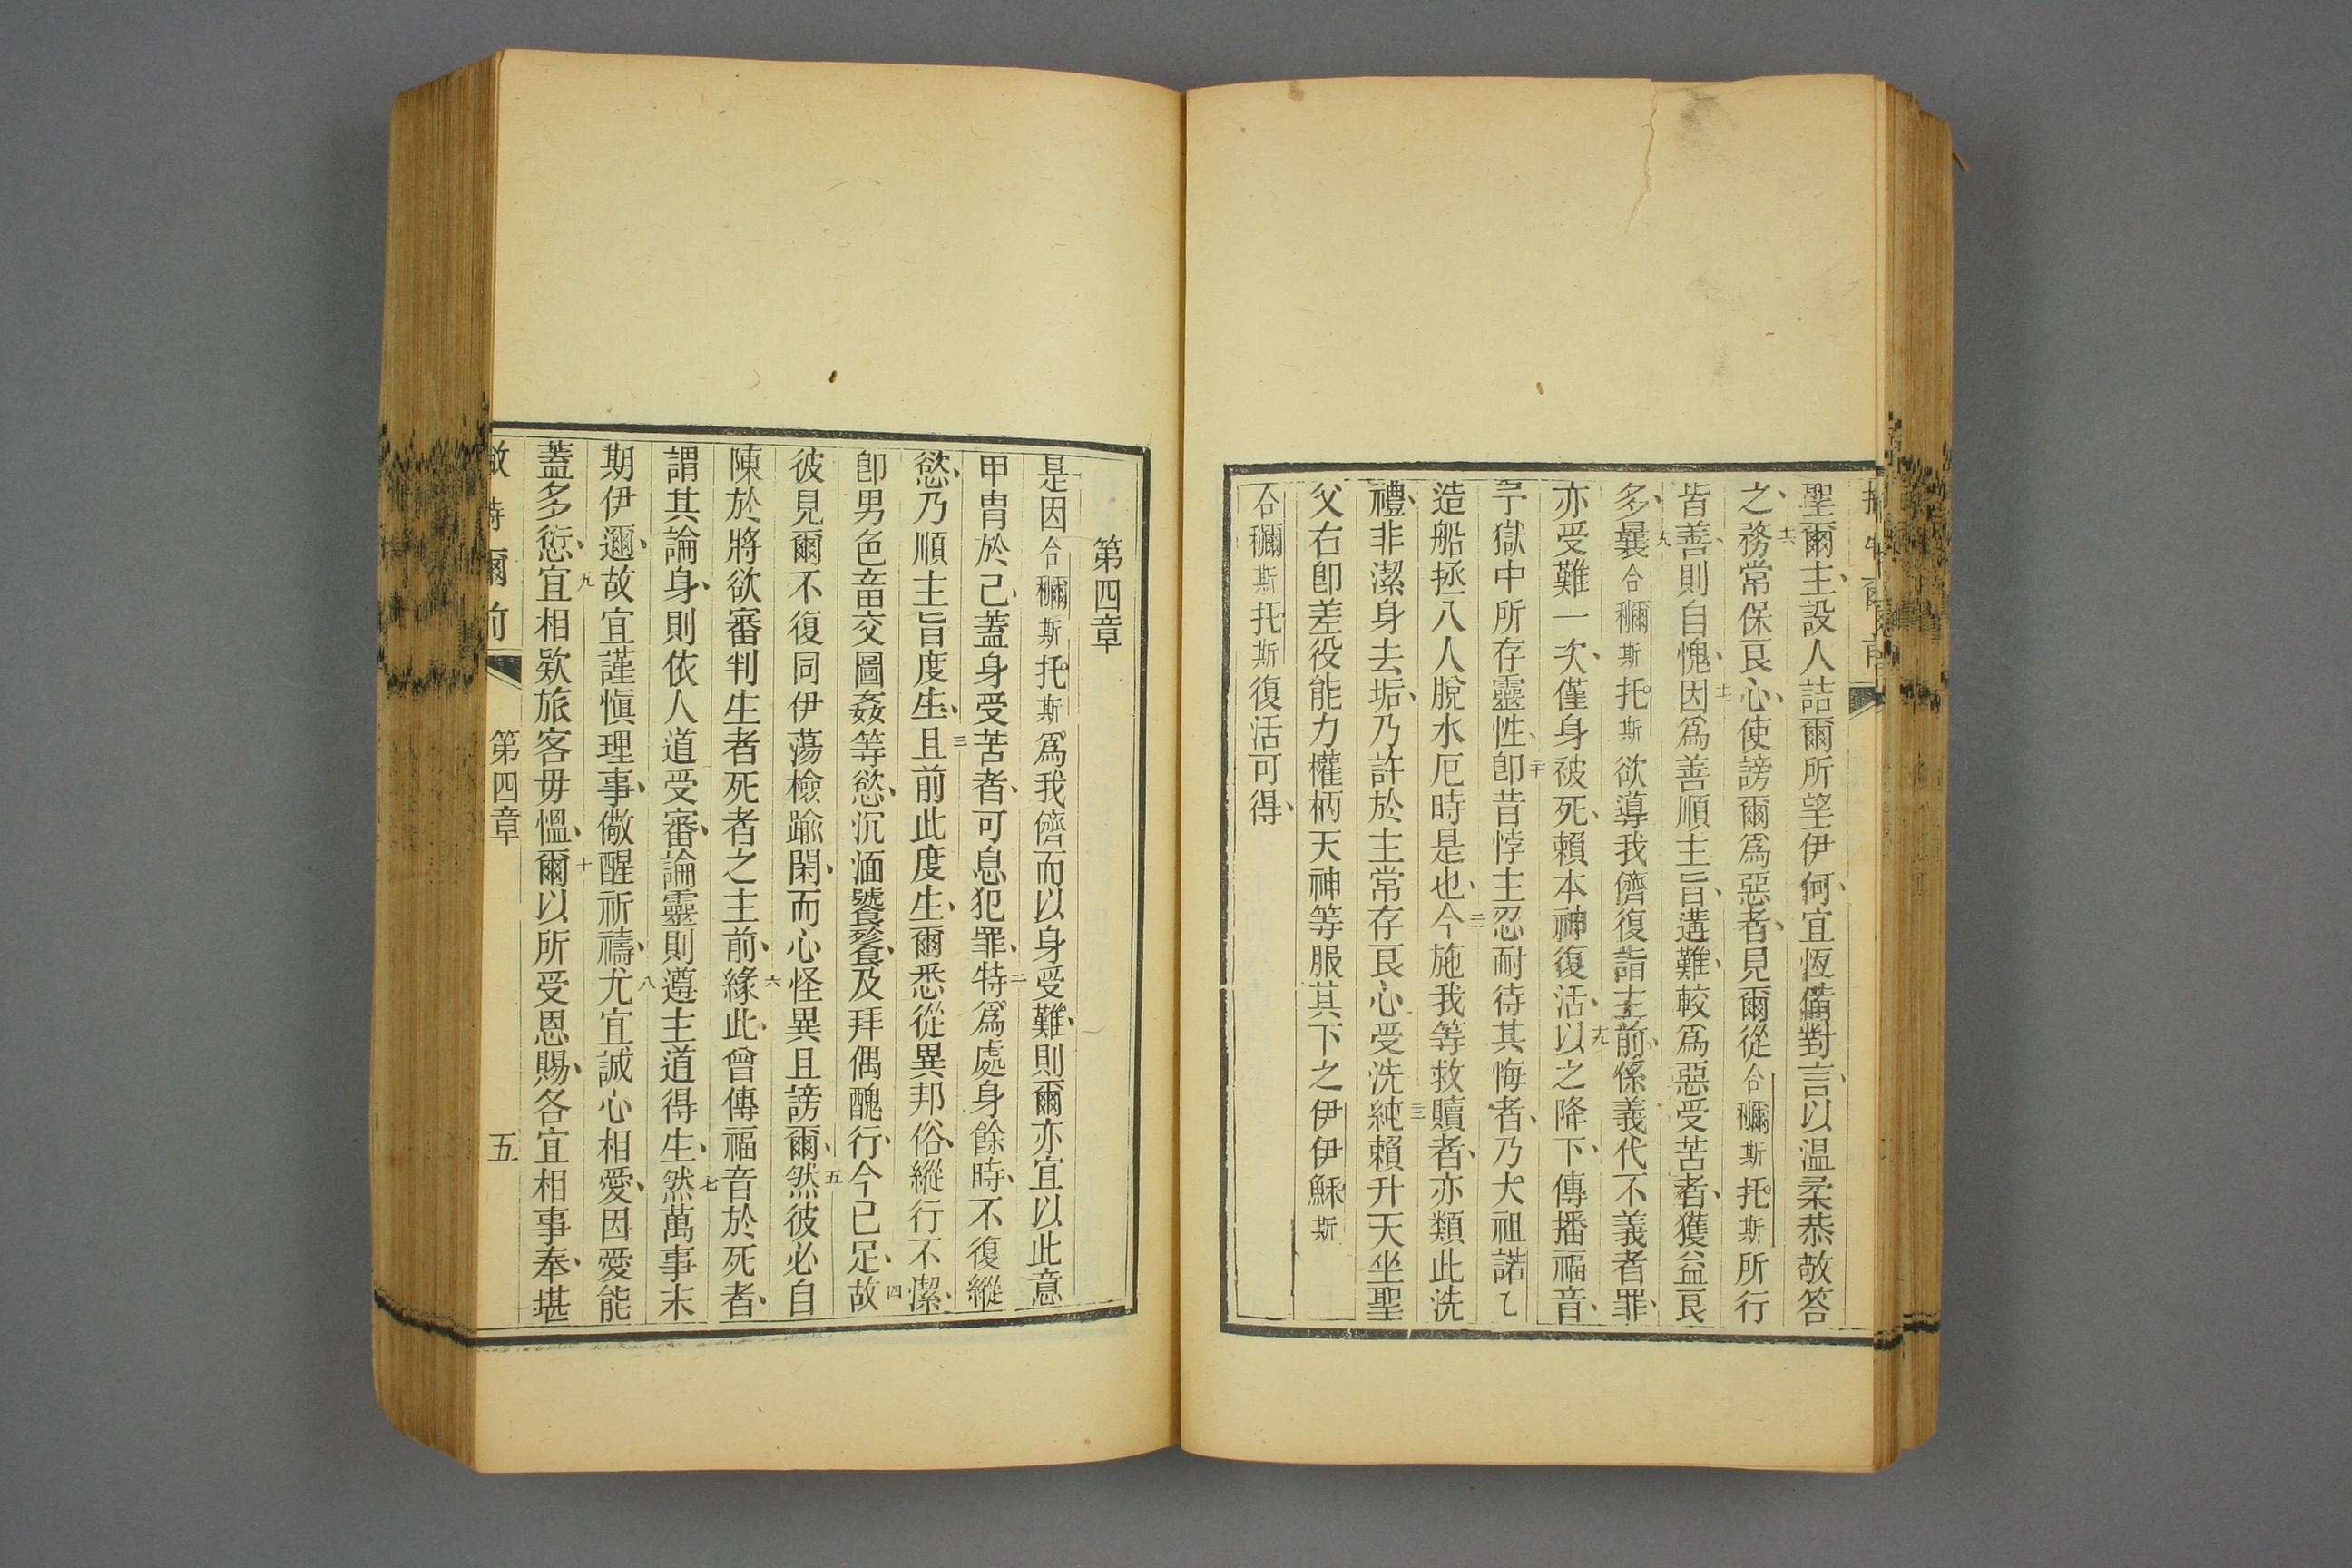 聖爾主、設人詰爾所望伊何、宜恆備對言、以温柔恭敬答
之、十六務常保良心、使謗爾爲惡者、見爾從合穪斯托斯所行
皆善、則自愧、十七因爲善順主旨、遘難、較爲惡受苦者、獲益良
多、十八曩合穪斯托斯欲導我儕復詣主前、係義代不義者罪、
亦受難一次、僅身被死、賴本神復活、十九以之降下、傳播福音、
於獄中所存靈性、二十即昔悖主忍耐待其悔者、乃犬祖諾乙
造船拯八人脫水厄時是也、二一今施我等救贖者、亦類此洗
禮、非潔身去垢、乃許於主常存良心受洗純二二賴升天坐聖
父右即差役能力權柄天神等服其下之伊伊穌斯
合穪斯托斯復活可得、
第四章
是因合穪斯托斯爲我儕而以身受難、則爾亦宜以此意
甲冑於己、蓋身受苦者、可息犯罪、二特爲處身餘時、不復縱
慾、乃順主旨度生、三且前此度生、爾悉從異邦俗、縱行不潔、
即男色畜交圖姦等慾、沉湎饕餮、及拜偶醜行、今已足、四故
彼見爾不復同伊蕩檢踰閑、而心怪異且謗爾、五然彼必自
陳於將欲審判生者死者之主前、六緣此、曾傳福音於死者、
謂其論身、則依人道受審、論靈則遵主道得生、七然萬事末
期伊邇、故宜謹愼理事、儆醒祈禱、八尤宜誠心相愛、因愛能
蓋多愆、九宜相欵旅客毋慍、十爾以所受恩賜、各宜相事奉、堪
爾前
第四章
五